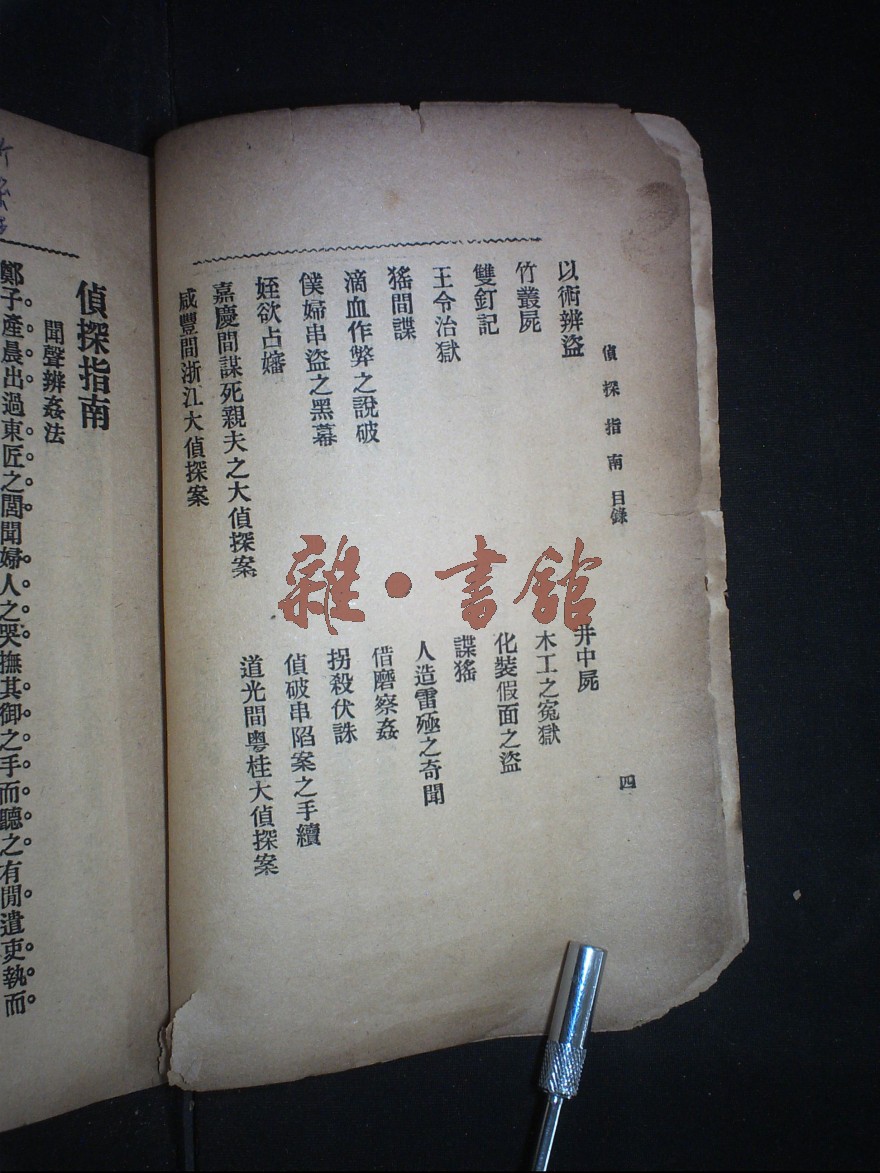 偵探指南 目錄 四
以術辨盜
井中屍
竹叢屍
木工之冤獄
雙釘記
化裝假面之盜
王令治獄
諜猺
猺間諜
人造雷殛之奇聞
滴血作弊之說破
借磨察姦
僕婦串盜之黑幕
拐殺伏誅
姪欲占嬸
偵破串陷案之手續
嘉慶間謀死親夫之大偵探案
道光間粵桂大偵探案
咸豐間浙江大偵探案
雜·書館
偵探指南
聞聲辨姦法
鄭子產晨出過東匠之閭聞婦人之哭撫其御之手而聽之有閒遣吏執而